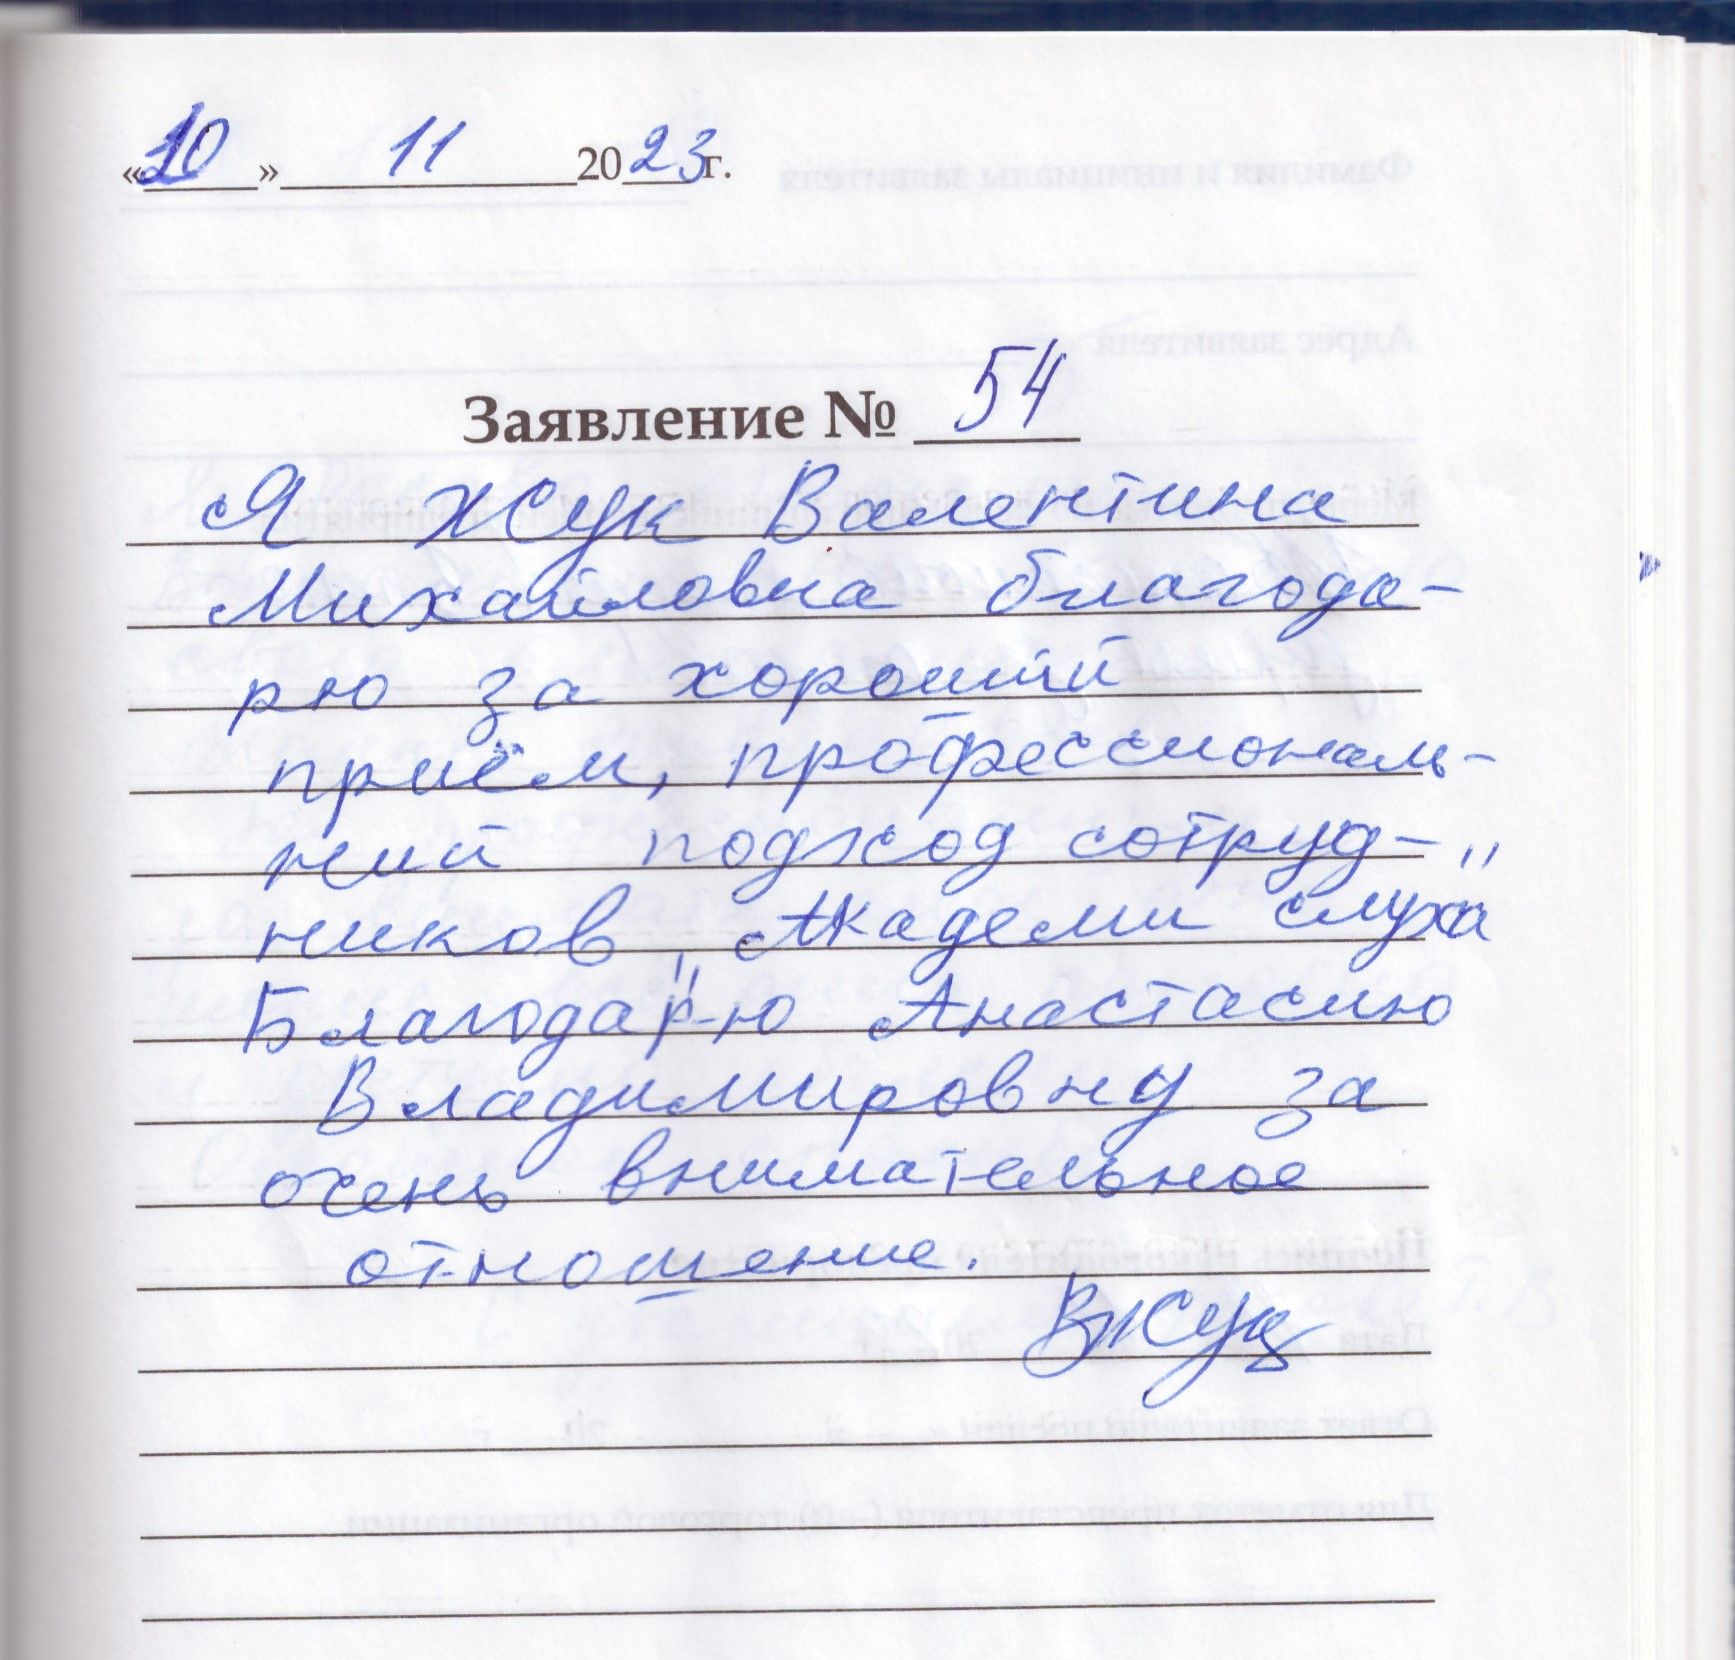 «10» 11 2023г.
Заявление № 54
Я Жук Валентина
Михайловна благода-
рю за хороший
приём, профессиональ-
ний подход сотруд-
ников „Академи слуха"
Благодарю Анастасию
Владимировну за
очень внимательное
отношение.
ВЖук